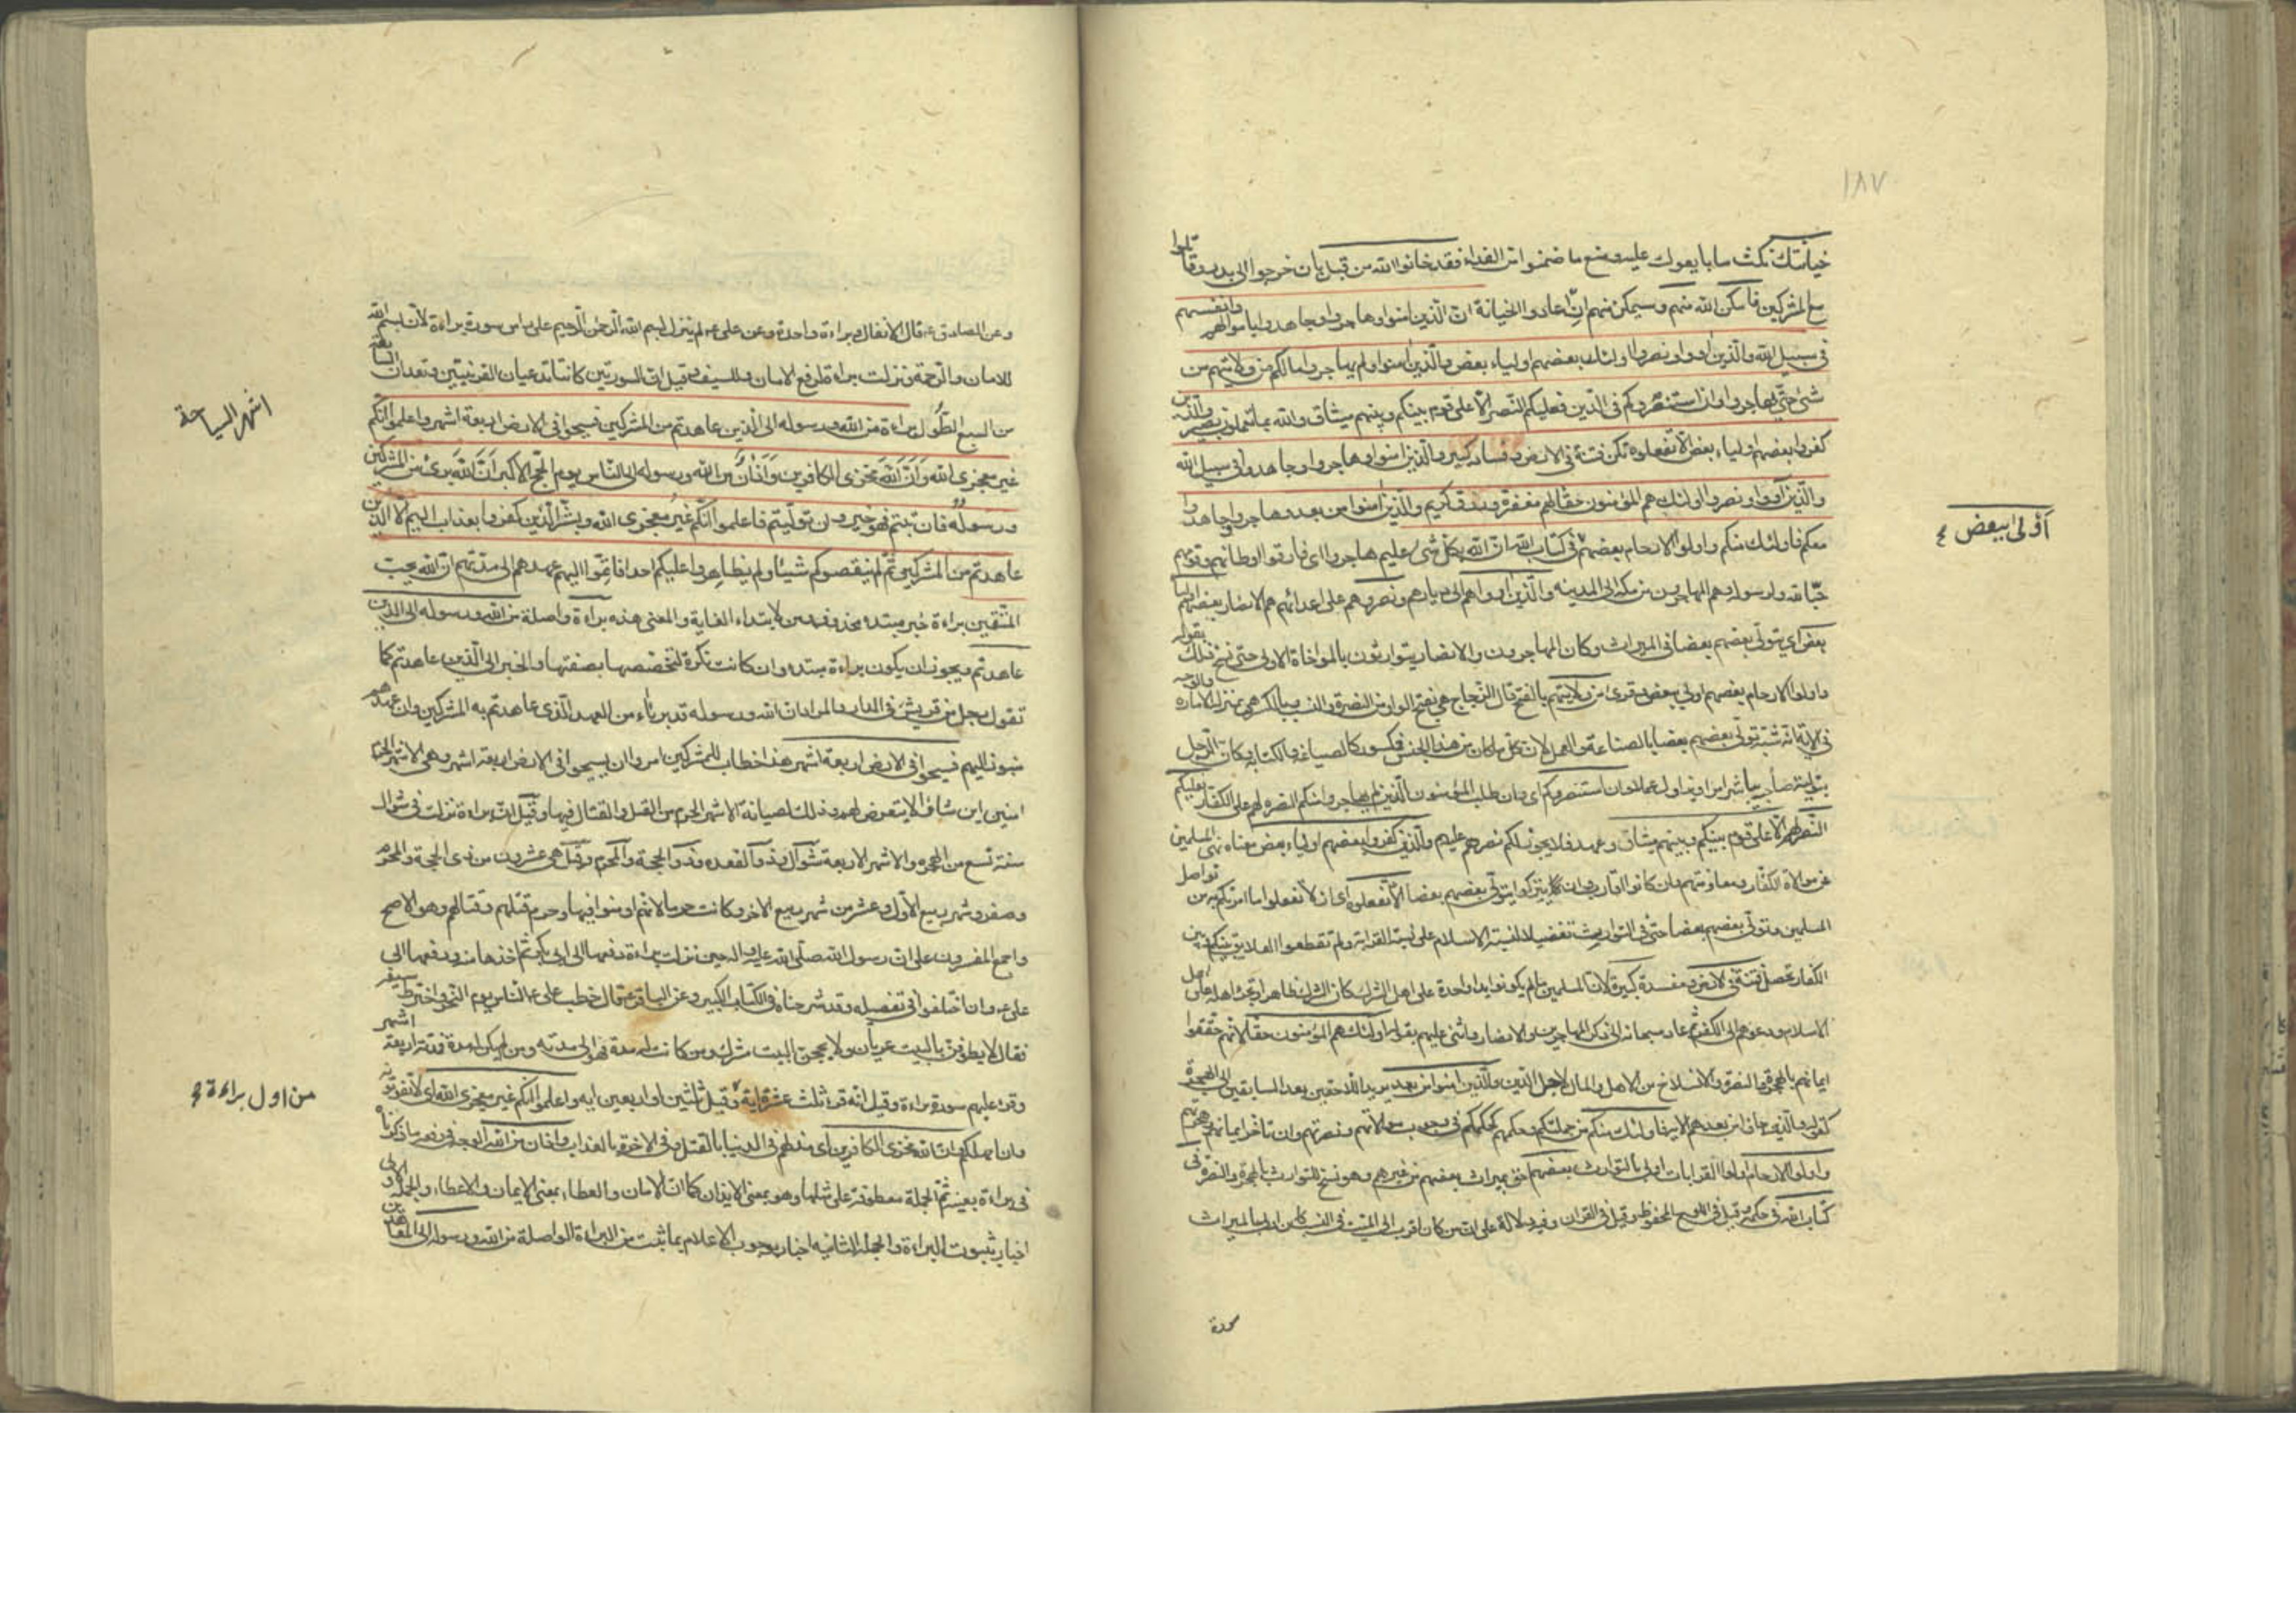 ١٨٧
خيانتك نكث ما بايعوك عليه ومنع ما ضمنوا من الفداء فقد خانوا الله من قبل بان خرجوا الى بدر وقاتلوا
مع المشركين فامكن الله منهم وسيمكن منهم ان عادوا الخيانة ان الذين امنوا وهاجروا وجاهدوا باموالهم وانفسهم
في سبيل الله والذين اووا ونصروا اولئك بعضهم اولياء بعض والذين امنوا ولم يهاجروا مالكم من ولايتهم من
شئ حتى يهاجروا وان استنصروكم في الدين فعليكم النصر الا على قوم بينكم وبينهم ميثاق والله بما تعملون بصير والذين
كفروا بعضهم اولياء بعض الا تفعلوه تكن فتنة في الارض وفساد كبير والذين امنوا وهاجروا وجاهدوا في سبيل الله
والذين آووا ونصروا اولئك هم المؤمنون حقا لهم مغفرة ورزق كريم والذين امنوا من بعد وهاجروا وجاهدوا
معكم فاولئك منكم واولوا الارحام بعضهم في كتاب الله ان الله بكل شئ عليم هاجروا اى فارقوا اوطانهم وقومهم
اولى ببعض
حبا لله ولرسوله وهم المهاجرون من مكة الى المدينه والذين اووا هم الى ديارهم ونصروهم على اعدائهم هم الانصار بعضهم اولياء
بعض اي يتولى بعضهم بعضا في الميراث وكان المهاجرون والانصار يتوارثون بالمواخاة الاولى حتى نسخ ذلك بقوله
واولوا الارحام بعضهم اولى ببعض وقرئ من ولايتهم بالفتح قال الزجاج هي بفتح الواو من النصرة والنسب وبالكسر هي بمنزلة الامارة والوجه
في الاية انه شبه تولى بعضهم بعضا بالصناعة والعمل لان كل ما كان من هذا الجنس فمكسور كالصياغه والكتابه وكان الرجل
بتوليته صاحبه يباشر امرا ويزاول عملا وان استنصروكم اى وان طلب المؤمنون الذين لم يهاجروا منكم النصره لهم على الكفار فعليكم
النصر لهم الا على قوم بينكم وبينهم ميثاق وعهد فلا يجوز لكم نصرهم عليهم والذين كفروا بعضهم اولياء بعض معناه نهى المسلمين
عن موالاة الكفار ومعاونتهم وان كانوا اقارب وان يتركوا يتولى بعضهم بعضا الا تفعلوه اى ان لا تفعلوا ما امرتكم به من تواصل
المسلمين وتولى بعضهم بعضا حتى في التوارث تفضيلا لنسبة الاسلام على نسبة القرابة ولم تقطعوا العلايق بينكم وبين
الكفار تحصل فتنة في الارض ومفسدة كبيرة لان المسلمين ما لم يكونوا يدا واحدة على اهل الشرك كان الشرك ظاهرا وتجرأ اهله على اهل
الاسلام ودعوهم الى الكفر ثم عاد سبحانه الى ذكر المهاجرين والانصار واثنى عليهم بقوله اولئك هم المؤمنون حقا لانهم حققوا
ايمانهم بالهجرة والنصرة والانسلاخ من الاهل والمال لاجل الدين والذين امنوا من بعد يريد اللاحقين بعد السابقين الى الهجرة
كقوله والذين جاؤا من بعدهم الاية فاولئك منكم من جملتكم وحكمهم كحكمكم في وجوب موالاتهم ونصرتهم وان تاخر ايمانهم وهجرتهم
واولوا الارحام اولوا القرابات اولى بالتوارث بعضهم احق بميراث بعضهم من غيرهم وهو نسخ للتوارث بالهجرة والنصرة في
كتاب الله في حكمه وقيل في اللوح المحفوظ وقيل في القرآن وفيه دلالة على ان من كان اقرب الى الميت في النسب كان اولى بالميراث
وعن الصادق ع قال الانفال وبراءة واحدة وعن على ع لم ينزل بسم الله الرحمن الرحيم على راس سورة براءة لان بسم الله
للامان والرحمة ونزلت براءة لرفع الامان وللسيف وقيل ان السورتين كانتا تدعيان القرينتين وتعدان السابعة
من السبع الطول براءة من الله ورسوله الى الذين عاهدتم من المشركين فسيحوا في الارض اربعة اشهر واعلموا انكم
اشهر السياحة
غير معجزى الله وان الله مخزى الكافرين واذان من الله ورسوله الى الناس يوم الحج الاكبر ان الله برئ من المشركين
ورسوله فان تبتم فهو خير وان توليتم فاعلموا انكم غير معجزى الله وبشر الذين كفروا بعذاب اليم الا الذين
عاهدتم من المشركين ثم لم ينقصوكم شيئا ولم يظاهروا عليكم احدا فاتموا اليهم عهدهم الى مدتهم ان الله يحب
المتقين براءة خبر مبتدء محذوف ومن لابتداء الغاية والمعنى هذه براءة واصلة من الله ورسوله الى الذين
عاهدتم ويجوز ان يكون براءة مبتدء وان كانت نكرة لتخصصها بصفتها والخبر الى الذين عاهدتم كما
تقول رجل من قريش في الدار والمراد ان الله ورسوله قد برئا من العهد الذى عاهدتم به المشركين وان عهدهم
منبوذ اليهم فسيحوا في الارض اربعة اشهر هذا خطاب للمشركين امروا ان يسيحوا في الارض اربعة اشهر وهى الاشهر الحرم
امنين اين شاؤا لا يتعرض لهم وذلك لصيانة الاشهر الحرم من القتل والقتال فيها وقيل ان براءة نزلت في شوال
سنة تسع من الهجره والاشهر الاربعة شوال وذو القعده وذو الحجة والمحرم وقيل هى عشرون من ذى الحجة والمحرم
وصفر وشهر ربيع الاول وعشر من شهر ربيع الاخر وكانت حرما لانهم اومنوا فيها وحرم قتلهم وقتالهم وهو الاصح
واجمع المفسرون على ان رسول الله صلى الله عليه واله حين نزلت براءة دفعها الى ابى بكر ثم اخذها منه ودفعها الى
على ع وان اختلفوا في تفصيله وقد شرحناه في الكتاب الكبير وعن الباقر ع قال خطب على ع الناس يوم النحر واخترط سيفه
فقال لا يطوفن بالبيت عريان ولا يحجن البيت مشرك ومن كانت له مدة فهو الى مدته ومن لم يكن له مدة فمدته اربعة اشهر
وقرء عليهم سورة براءة وقيل انه قرء ثلث عشرة اية وقيل ثلثين او اربعين ايه واعلموا انكم غير معجزى الله اى لا تفوتونه
من اول براءة
وان امهلكم وان الله مخزى الكافرين اى مذلهم في الدنيا بالقتل وفى الاخرة بالعذاب واذان من الله الوجه في رفعه ما ذكرناه
في براءة بعينه ثم الجملة معطوفة على مثلها وهو بمعنى الايذان كما ان الامان والعطاء بمعنى الايمان والاعطاء والجملة الاولى
اخبار بثبوت البراءة والجملة الثانيه اخبار بوجوب الاعلام بما ثبت من البراءة الواصلة من الله ورسوله الى المعاهدين